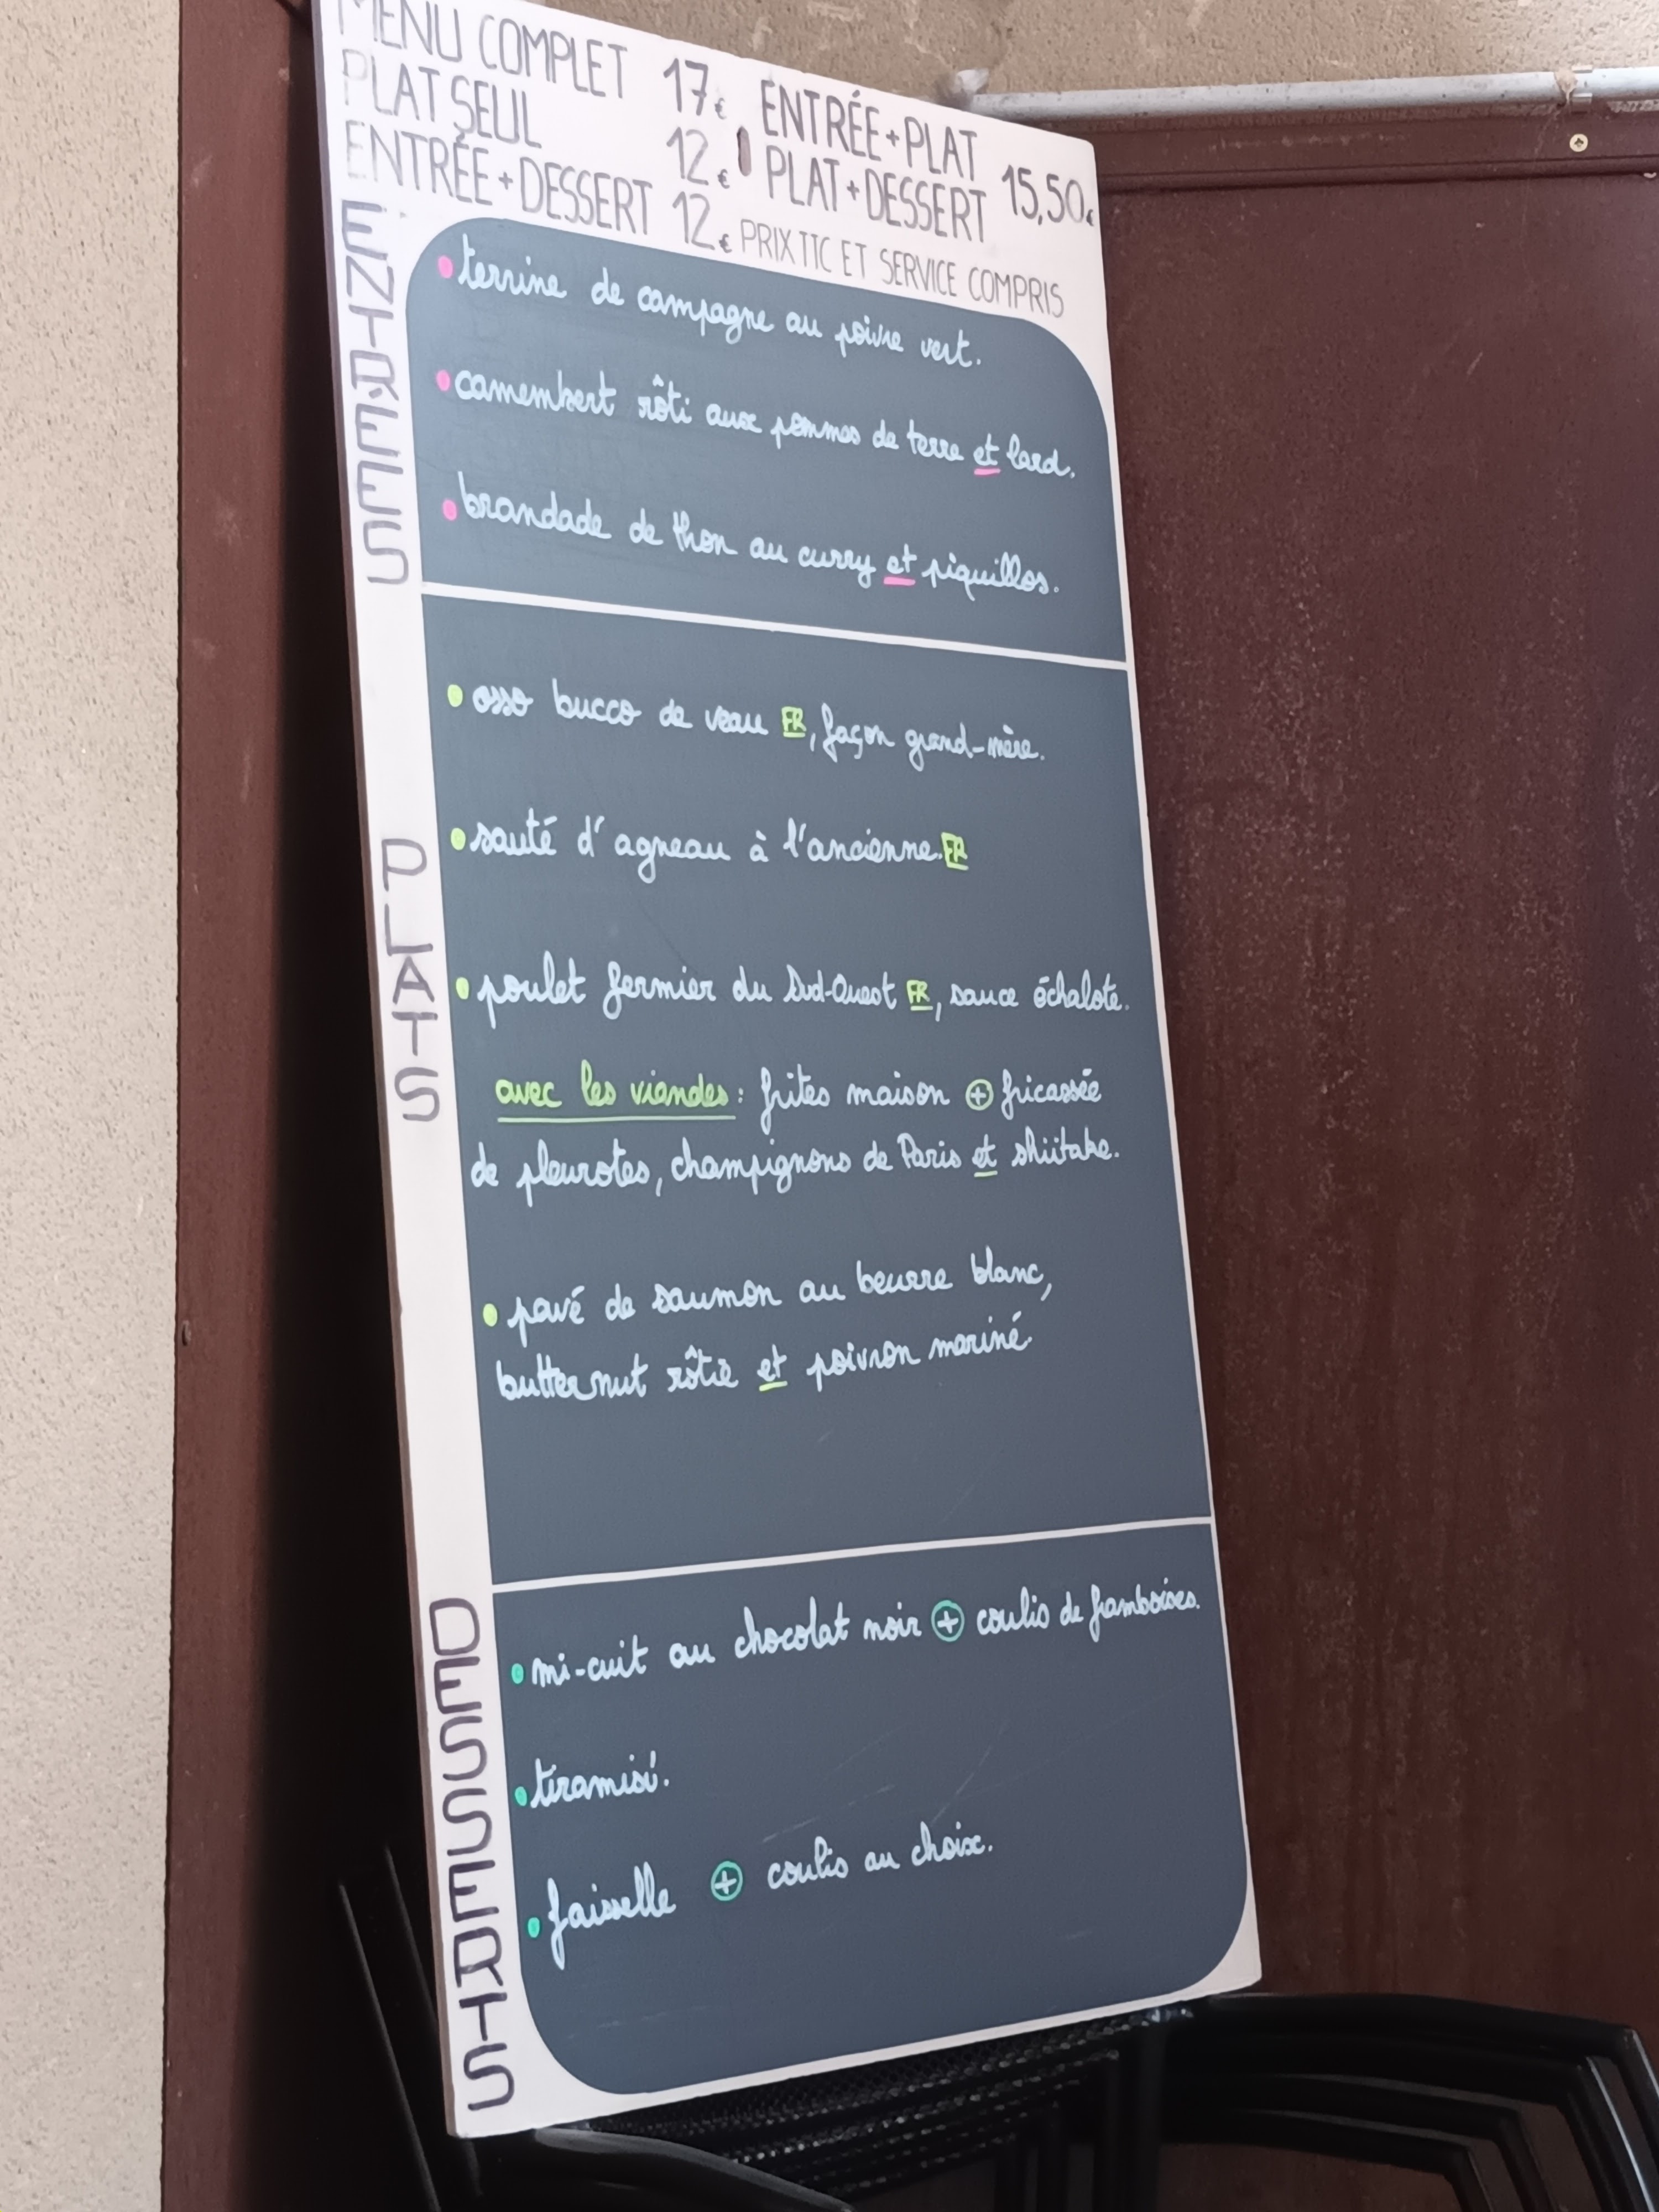 MENU COMPLET 17€
PLAT SEUL 12€
ENTRÉE+DESSERT 12€
ENTRÉE+PLAT
PLAT+DESSERT 15,50€
PRIX TTC ET SERVICE COMPRIS
ENTREES
• terrine de campagne au poivre vert.
• camembert rôti aux pommes de terre et lard.
• brandade de thon au curry et piquillos.
PLATS
• osso bucco de veau FR, façon grand-mère.
• sauté d'agneau à l'ancienne. FR
• poulet fermier du Sud-Ouest FR, sauce échalote.
avec les viandes : frites maison + fricassée
de pleurotes, champignons de Paris et shiitake.
• pavé de saumon au beurre blanc,
butternut rôtie et poivron mariné.
DESSERTS
• mi-cuit au chocolat noir + coulis de framboises.
• tiramisú.
• faisselle + coulis au choix.